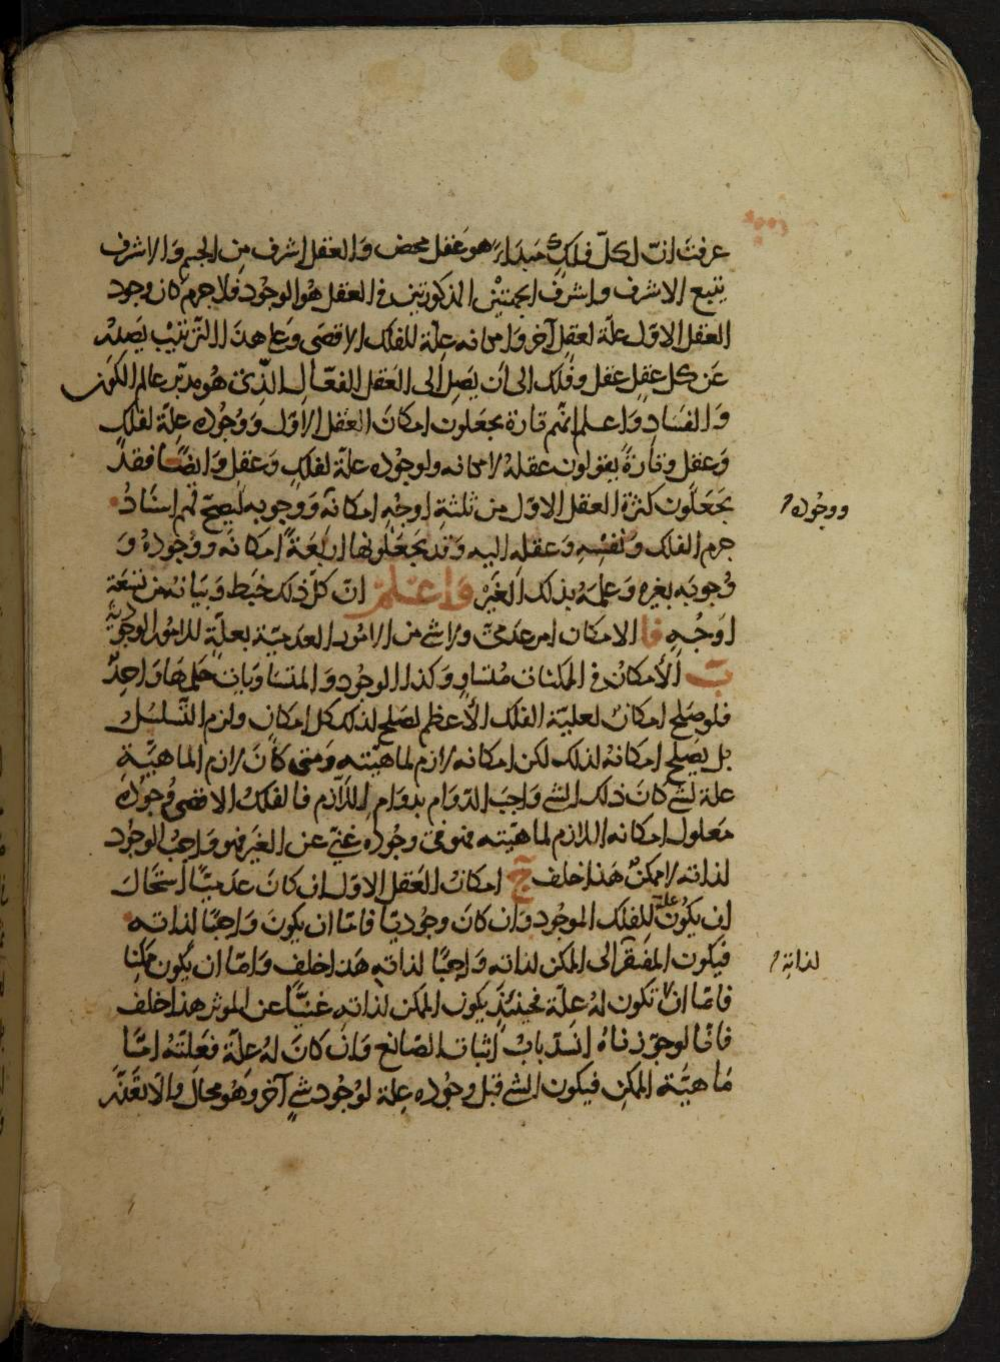 عرفت ان لكل فلك مبداء هو عقل محض والعقل اشرف من الجسم والاشرف
يتبع الاشرف واشرف الجهتين المذكورتين في العقل هو الوجود فلا جرم كان وجود
العقل الاول علة لعقل آخر وامكانه علة للفلك الاقصى وعلى هذا الترتيب يصدر
عن كل عقل عقل وفلك الى ان يصل الى العقل الفعال الذي هو مدبر عالم الكون
والفساد واعلم انهم تارة يجعلون امكان العقل الاول ووجوده علة لفلك
وعقل وتارة يقولون عقله لامكانه ولوجوده علة لفلك وعقل وايضا فقد
يجعلون كثرة العقل الاول من ثلثة اوجه امكانه ووجوبه ليصح لهم اسناد
ووجوده
جرم الفلك ونفسه وعقله اليه وقد يجعلونها اربعة امكانه ووجوده و
وجوبه بغيره وعلمه بذلك الغير واعلم ان كل ذلك خبط وبيانه من تسعة
اوجه فا الامكان امر عدمي ولا شئ من الامور العدمية بعلة للامور الوجودية
ب الامكان في الممكنات متساو وكذا الوجود والمتساويان حكمهما واحد
فلو صلح امكان لعلية الفلك الاعظم لصلح لذلك كل امكان ولزم التسلسل
بل يصلح امكانه لذلك لكن امكانه لازم لماهيته ومتى كان لازم الماهية
علة لشئ كان ذلك الشئ واجب الدوام بدوام اللازم فالفلك الاقصى وجوده
معلول امكانه اللازم لماهيته فهو في وجوده غني عن الغير فهو واجب الوجود
لذاته لا ممكن هذا خلف ج امكان العقل الاول ان كان عدميا استحال
ان يكون علة للفلك الموجود وان كان وجوديا فاما ان يكون واجبا لذاته
فيكون المفتقر الى الممكن لذاته واجبا لذاته هذا خلف واما ان يكون ممكنا
لذاته
فاما ان لا تكون له علة فحينئذ يكون الممكن لذاته غنيا عن المؤثر هذا خلف
فانا لو جوزناه انسد باب اثبات الصانع وان كان له علة فعلته اما
ماهية الممكن فيكون الشئ قبل وجوده علة لوجود شئ آخر وهو محال والا